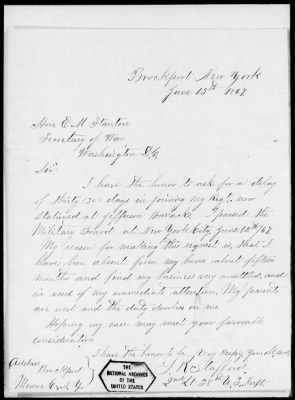 Brockport New York
June 13th 1867
Hon E. M. Stanton
Secretary of War
Washington D.C.
Sir
I have the honor to ask for a delay
of thirty (30) days in joining my Regt. now
stationed at Jefferson Barracks. I passed the
Military Board at New York City June 12th/67
My reason for making this request is, that I
have been absent from my home about fifteen
months and find my business very unsettled, and
in need of my immediate attention. My parents
are west and the duty devolves on me
Hoping my case may meet your favorable
consideration
I have the honor to be Very Respy Your Obt. Servt
Address
Brockport
Monroe Co. N. Y.
S. R. Stafford
2nd Lt 28th U.S. Inft
THE
NATIONAL ARCHIVES
OF THE
UNITED STATES